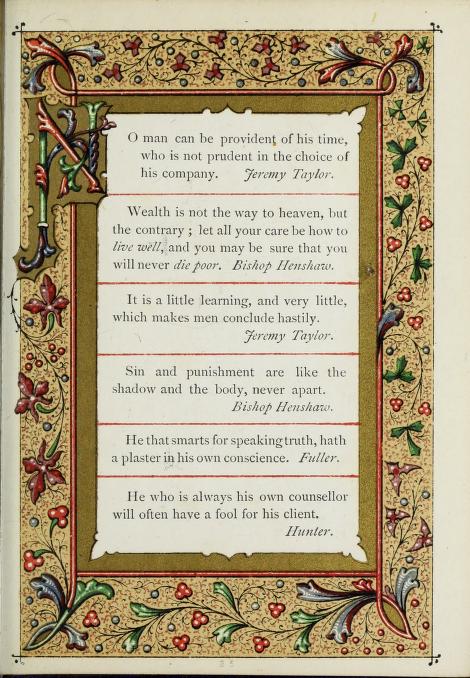 NO man can be provident of his time,
who is not prudent in the choice of
his company. Jeremy Taylor.
Wealth is not the way to heaven, but
the contrary; let all your care be how to
live well, and you may be sure that you
will never die poor. Bishop Henshaw.
It is a little learning, and very little,
which makes men conclude hastily.
Jeremy Taylor.
Sin and punishment are like the
shadow and the body, never apart.
Bishop Henshaw.
He that smarts for speaking truth, hath
a plaster in his own conscience. Fuller.
He who is always his own counsellor
will often have a fool for his client.
Hunter.